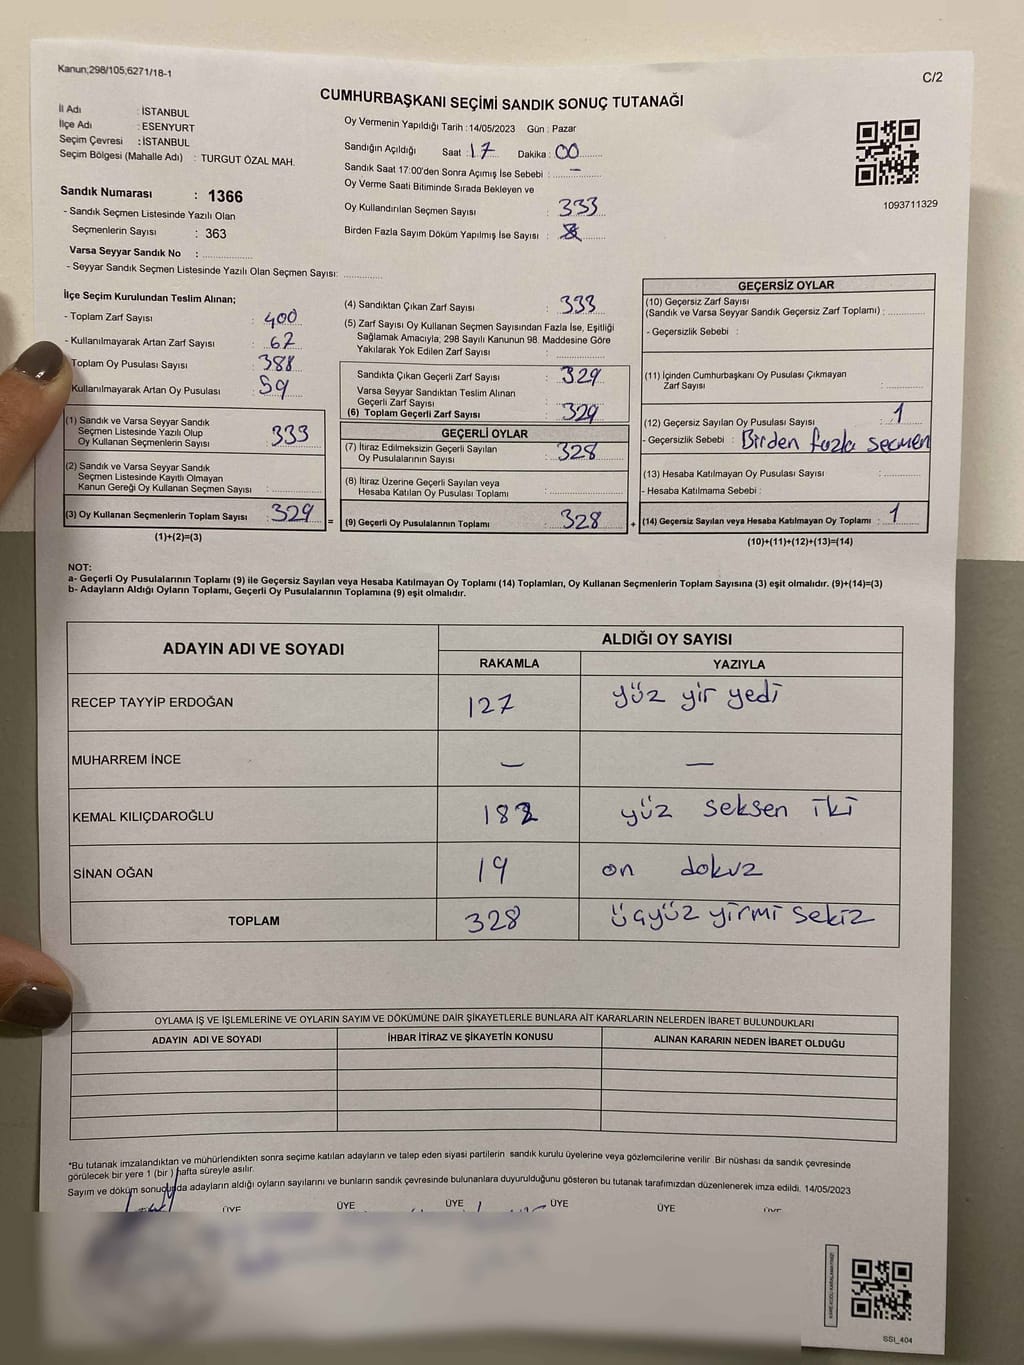 Kanun;298/105;6271/18-1
C/2
CUMHURBAŞKANI SEÇİMİ SANDIK SONUÇ TUTANAĞI
İl Adı : İSTANBUL
İlçe Adı : ESENYURT
Seçim Çevresi : İSTANBUL
Seçim Bölgesi (Mahalle Adı) : TURGUT ÖZAL MAH.
Oy Vermenin Yapıldığı Tarih :14/05/2023 Gün : Pazar
Sandığın Açıldığı Saat : 17 Dakika : 00
Sandık Saat 17:00'den Sonra Açımış İse Sebebi : -
Oy Verme Saati Bitiminde Sırada Bekleyen ve
Oy Kullandırılan Seçmen Sayısı : 333
Birden Fazla Sayım Döküm Yapılmış İse Sayısı :
1093711329
Sandık Numarası : 1366
- Sandık Seçmen Listesinde Yazılı Olan
Seçmenlerin Sayısı : 363
Varsa Seyyar Sandık No :
- Seyyar Sandık Seçmen Listesinde Yazılı Olan Seçmen Sayısı:
İlçe Seçim Kurulundan Teslim Alınan;
- Toplam Zarf Sayısı : 400
- Kullanılmayarak Artan Zarf Sayısı : 67
Toplam Oy Pusulası Sayısı : 388
Kullanılmayarak Artan Oy Pusulası : 59
(1) Sandık ve Varsa Seyyar Sandık
Seçmen Listesinde Yazılı Olup
Oy Kullanan Seçmenlerin Sayısı : 333
(2) Sandık ve Varsa Seyyar Sandık
Seçmen Listesinde Kayıtlı Olmayan
Kanun Gereği Oy Kullanan Seçmen Sayısı :
(3) Oy Kullanan Seçmenlerin Toplam Sayısı : 329
(1)+(2)=(3)
(4) Sandıktan Çıkan Zarf Sayısı : 333
(5) Zarf Sayısı Oy Kullanan Seçmen Sayısından Fazla İse, Eşitliği
Sağlamak Amacıyla, 298 Sayılı Kanunun 98. Maddesine Göre
Yakılarak Yok Edilen Zarf Sayısı :
Sandıkta Çıkan Geçerli Zarf Sayısı : 329
Varsa Seyyar Sandıktan Teslim Alınan
Geçerli Zarf Sayısı :
(6) Toplam Geçerli Zarf Sayısı : 329
GEÇERLİ OYLAR
(7) İtiraz Edilmeksizin Geçerli Sayılan
Oy Pusulalarının Sayısı : 328
(8) İtiraz Üzerine Geçerli Sayılan veya
Hesaba Katılan Oy Pusulası Toplamı :
= (9) Geçerli Oy Pusulalarının Toplamı : 328
GEÇERSİZ OYLAR
(10) Geçersiz Zarf Sayısı
(Sandık ve Varsa Seyyar Sandık Geçersiz Zarf Toplamı) :
- Geçersizlik Sebebi :
(11) İçinden Cumhurbaşkanı Oy Pusulası Çıkmayan
Zarf Sayısı :
(12) Geçersiz Sayılan Oy Pusulası Sayısı : 1
- Geçersizlik Sebebi : Birden fazla seçmen
(13) Hesaba Katılmayan Oy Pusulası Sayısı :
- Hesaba Katılmama Sebebi :
+ (14) Geçersiz Sayılan veya Hesaba Katılmayan Oy Toplamı : 1
(10)+(11)+(12)+(13)=(14)
NOT:
a- Geçerli Oy Pusulalarının Toplamı (9) ile Geçersiz Sayılan veya Hesaba Katılmayan Oy Toplamı (14) Toplamları, Oy Kullanan Seçmenlerin Toplam Sayısına (3) eşit olmalıdır. (9)+(14)=(3)
b- Adayların Aldığı Oyların Toplamı, Geçerli Oy Pusulalarının Toplamına (9) eşit olmalıdır.
ADAYIN ADI VE SOYADI
ALDIĞI OY SAYISI
RAKAMLA YAZIYLA
RECEP TAYYİP ERDOĞAN 127 yüz yir yedi
MUHARREM İNCE - -
KEMAL KILIÇDAROĞLU 182 yüz seksen iki
SİNAN OĞAN 19 on dokuz
TOPLAM 328 üçyüz yirmi sekiz
OYLAMA İŞ VE İŞLEMLERİNE VE OYLARIN SAYIM VE DÖKÜMÜNE DAİR ŞİKAYETLERLE BUNLARA AİT KARARLARIN NELERDEN İBARET BULUNDUKLARI
ADAYIN ADI VE SOYADI İHBAR İTİRAZ VE ŞİKAYETİN KONUSU ALINAN KARARIN NEDEN İBARET OLDUĞU
*Bu tutanak imzalandıktan ve mühürlendikten sonra seçime katılan adayların ve talep eden siyasi partilerin sandık kurulu üyelerine veya gözlemcilerine verilir. Bir nüshası da sandık çevresinde
görülecek bir yere 1 (bir) hafta süreyle asılır.
Sayım ve döküm sonucunda adayların aldığı oyların sayılarını ve bunların sandık çevresinde bulunanlara duyurulduğunu gösteren bu tutanak tarafımızdan düzenlenerek imza edildi. 14/05/2023
ÜYE ÜYE ÜYE ÜYE ÜYE ÜYE
SSI_404